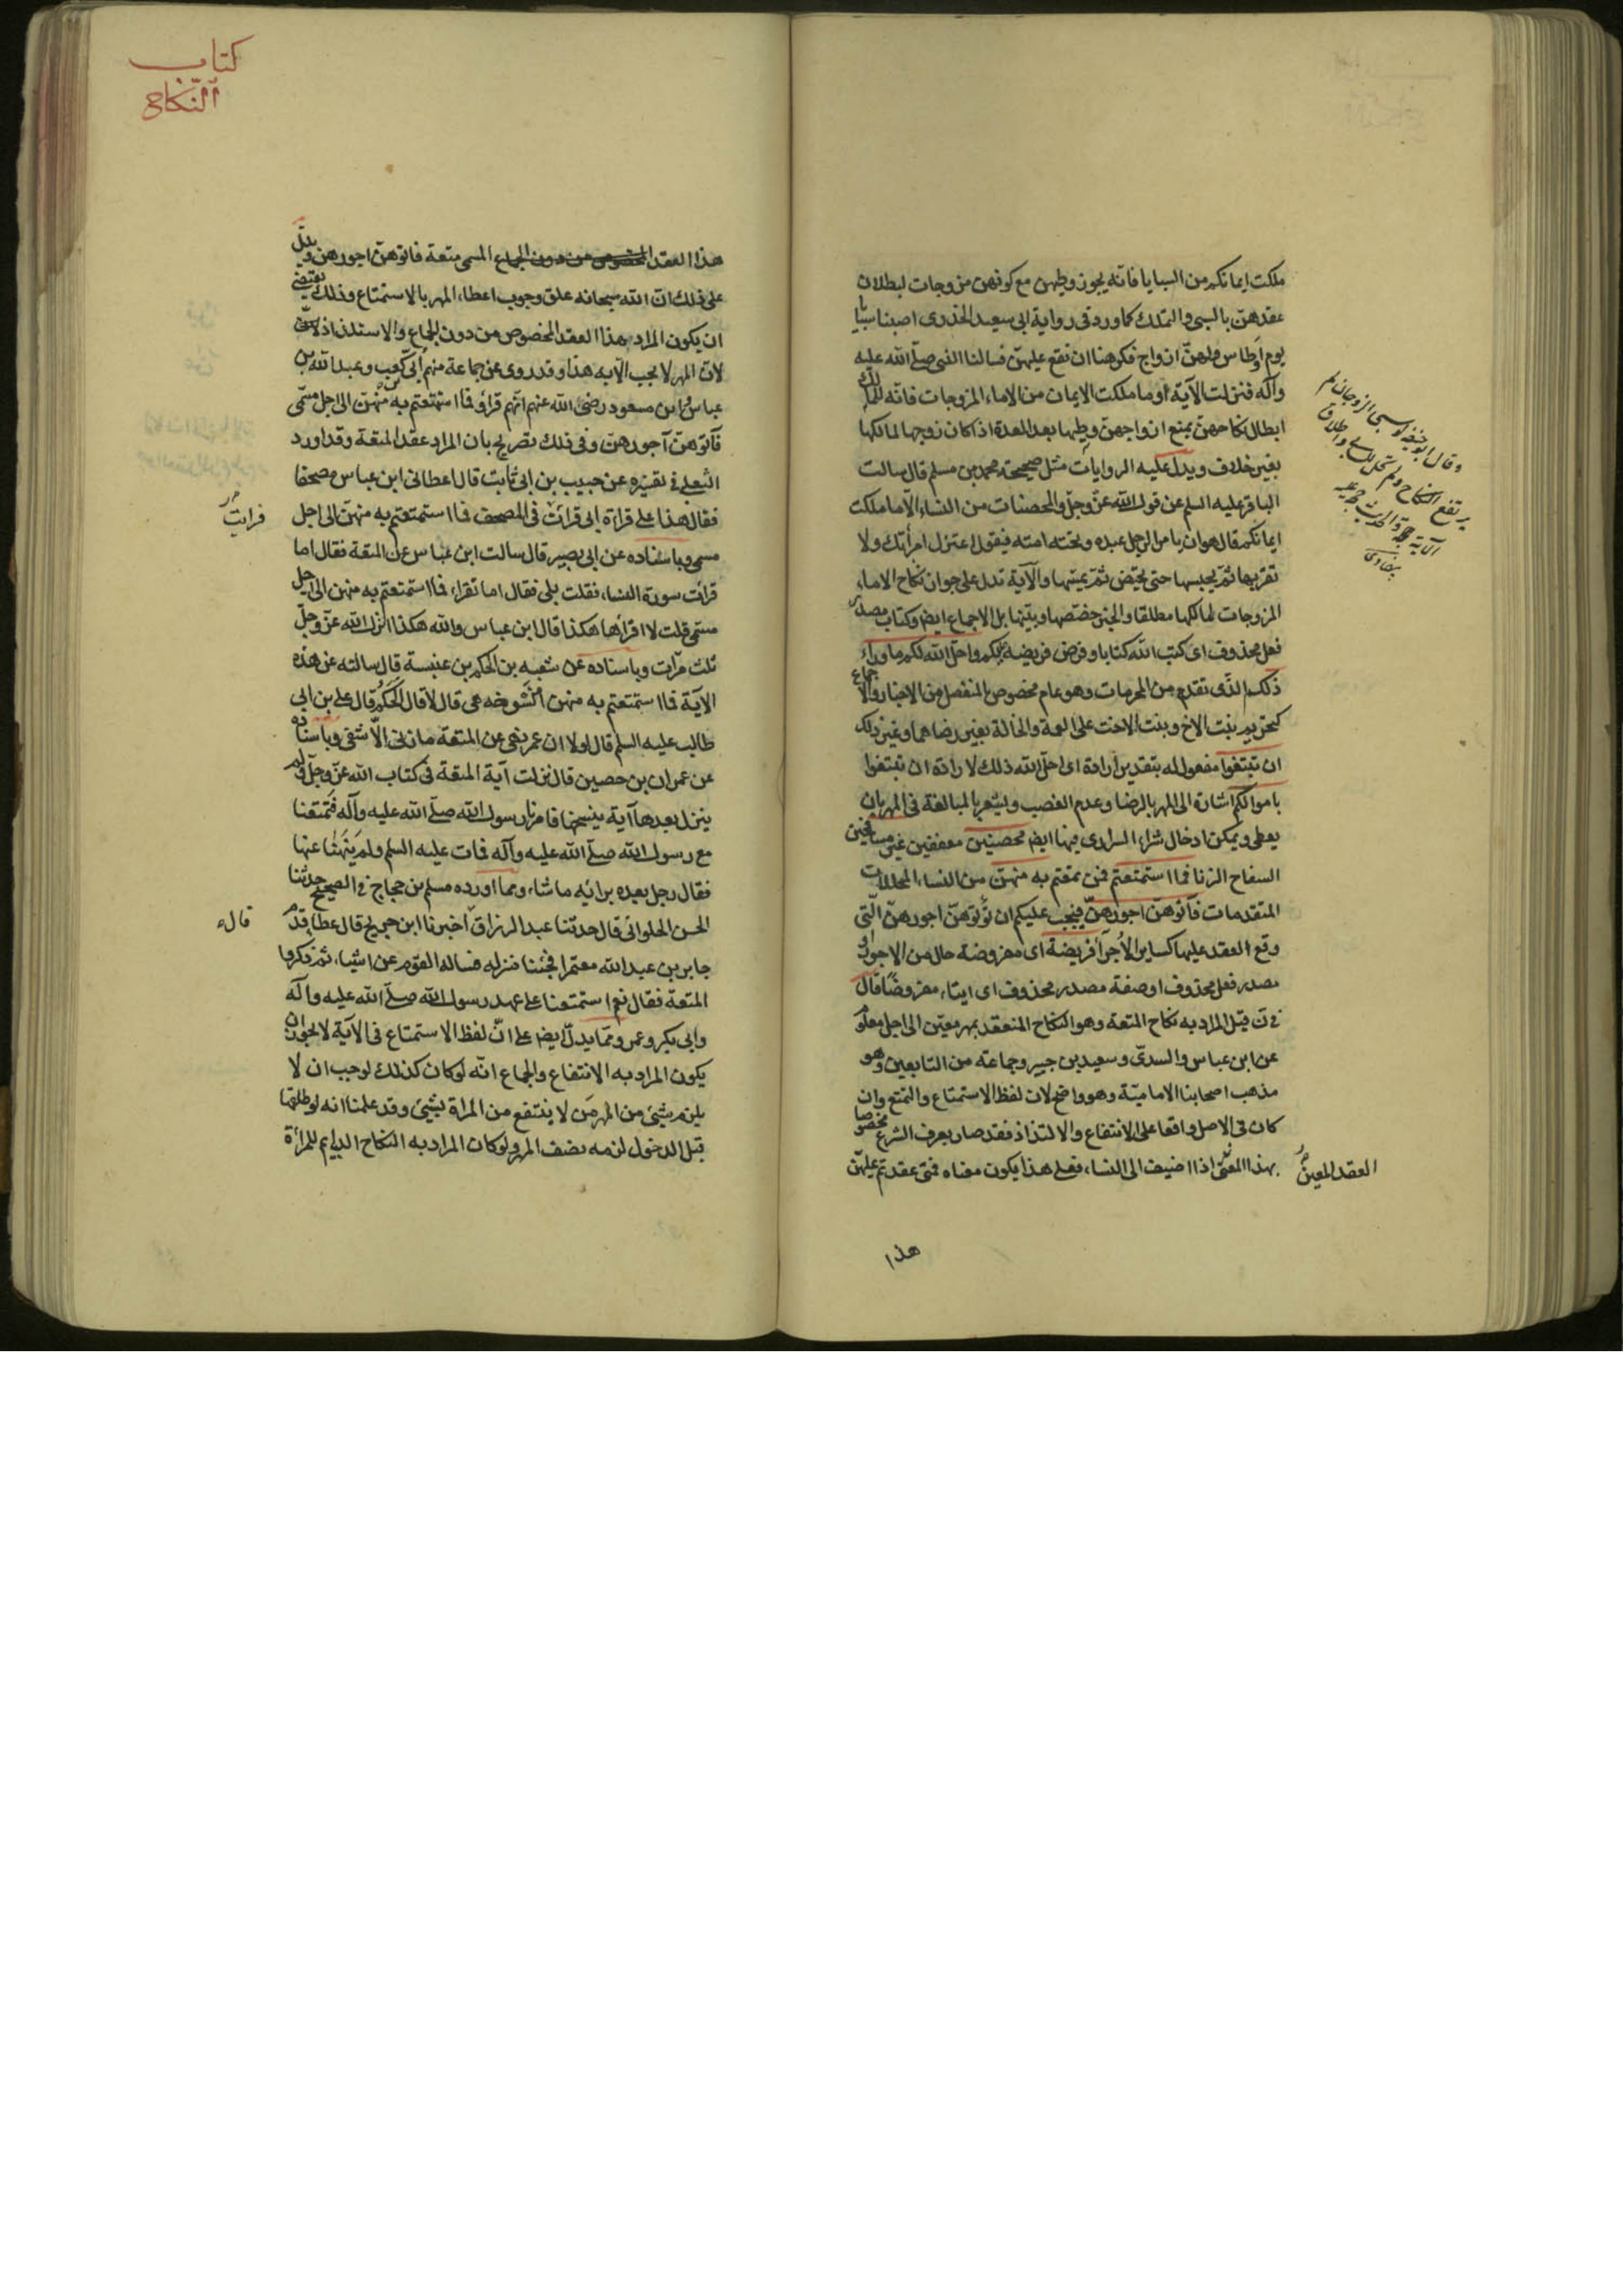 ملكت ايمانكم من السبايا فانّه يجوز وطيهن مع كونهن مزوجات لبطلان
عقدهنّ بالسبى والتملك كما ورد فى رواية ابى سعيد الخدرى اصبنا سبايا
يوم اوطاس ولهنّ ازواج فكرهنا ان نقع عليهنّ فسالنا النبى صلّى الله عليه
وآله فنزلت الآية او ما ملكت الايمان من الاماء المزوجات فانّه للمالك
ابطال نكاحهنّ بمنع ازواجهنّ وطيها بعد العدة اذا كان زوجها لمالكها
بغير خلاف ويدلّ عليه الروايات مثل صحيحة محمد بن مسلم قال سالت
الباقر عليه السلم عن قول الله عزّ وجلّ والمحصنات من النساء الّا ما ملكت
ايمانكم قال هو ان يامر الرجل عبده وتحته امته فيقول اعتزل امرأتك ولا
تقربها ثمّ يحبسها حتى تحيض ثمّ يمسّها والآية تدل على جواز نكاح الاماء
المزوجات لمالكها مطلقا والخبر خصّصها وبيّنها بل الاجماع ايض وكتاب مصدر
فعل محذوف اى كتب الله كتابا وفرض فريضة عليكم واحلّ الله لكم ما وراء
ذلك الذى تقدم من المحرمات وهو عام مخصوص بالمنفصل من الاخبار والاجماع
كتحريم بنت الاخ وبنت الاخت على العمة والخالة بغير رضاهما وغير ذلك
ان تبتغوا مفعول له بتقدير ارادة اى احلّ الله ذلك لارادة ان تبتغوا
باموالكم اشارة الى المهر بالرضا وعدم الغصب ويشعر بالمبالغة فى المهر بان
يعطى ويمكن ادخال شراء السرارى فيها ايض محصنين معففين غير مسافحين
السفاح الزنا فما استمتعتم فمن تمتعتم به منهنّ من النساء المحللات
المتقدمات فآتوهنّ اجورهنّ فيجب عليكم ان تؤتوهنّ اجورهنّ الّتى
وقع العقد عليها كساير الأجراء فريضة اى مفروضة حال من الاجور او
مصدر فعل محذوف او صفة مصدر محذوف اى ايتاء مفروضًا قال
فى ن قيل المراد به نكاح المتعة وهو النكاح المنعقد بمهر معيّن الى اجل معلوم
عن ابن عباس والسدىّ وسعيد بن جبير وجماعة من التابعين وهو
مذهب اصحابنا الاماميّة وهو واضح لان لفظ الاستمتاع والتمتع وان
كان فى الاصل واقعا على الانتفاع والالتذاذ فقد صار بعرف الشرع مخصوصا
بهذا العقد المعين اذا اضيف الى النساء فعلى هذا يكون معناه فمتى عقدتم عليهنّ
هذا
وقال ابو حنيفة لو سبى الزوجان لم
يرتفع النكاح ولم تحل للسابى واطلاق
الآية والحديث حجة عليه
بيضاوى
كتاب
النّكاح
هذا العقد المسمى متعة فاتوهنّ اجورهن ويدلّ
على ذلك انّ الله سبحانه علق وجوب اعطاء المهر بالاستمتاع وذلك يقتضى
ان يكون المراد هذا العقد المخصوص من دون الجماع والاستلذاذ
لان المهر لا يجب الّا به هذا وقد روى عن جماعة منهم ابىّ كعب وعبد الله بن
عباس وابن مسعود رضى الله عنهم انّهم قرأوا فما استمتعتم به منهنّ الى اجل مسمّى
فآتوهنّ اجورهنّ وفى ذلك تصريح بان المراد عقد المتعة وقد اورد
الثعلبى فى تفسيره عن حبيب بن ابى ثابت قال اعطانى ابن عباس مصحفا
فقال هذا على قراءة ابى فرايت فى المصحف فما استمتعتم به منهنّ الى اجل
مسمى وباسناده عن ابى بصير قال سالت ابن عباس عن المتعة فقال اما
قرات سورة النساء فقلت بلى فقال اما تقراء فما استمتعتم به منهن الى اجل
مسمى قلت لا اقرأها هكذا قال ابن عباس والله هكذا انزل الله عزّ وجلّ
ثلث مرّات وباسناده عن شعبه بن الحكم بن عنبسة قال سالته عن هذه
الآية فما استمتعتم به منهن امنسوخه هى قال لا قال الحكم قال على بن ابى
طالب عليه السلم قال لولا ان عمر نهى عن المتعة ما زنى الّا شقى وباسناده
عن عمران بن حصين قال نزلت آية المتعة فى كتاب الله عزّ وجلّ ولم
ينزل بعدها آية ينسخها فامرنا رسول الله صلّى الله عليه وآله فتمتعنا
مع رسول الله صلّى الله عليه وآله فمات عليه السلم ولم ينهنا عنها
فقال رجل بعده برائيه ما شاء ومما اورده مسلم بن حجاج فى الصحيح حدثنا
الحسن الحلوائى قال حدثنا عبد الرزاق اخبرنا ابن جريح قال قال عطا قدم
جابر بن عبد الله معتمرا فجئنا منزله فساله القوم عن اشياء ثم ذكروا
المتعة فقال نعم استمتعنا على عهد رسول الله صلّى الله عليه وآله
وابى بكر وعمر ومما يدلّ ايض على انّ لفظ الاستمتاع فى الآية لا يجوز ان
يكون المراد به الانتفاع والجماع انّه لو كان كذلك لوجب ان لا
يلزم شيئ من المهر من لا ينتفع من المراة بشيئ وقد علمنا انه لو طلقها
قبل الدخول لزمه نصف المهر ولو كان المراد به النكاح الدايم للمرأة